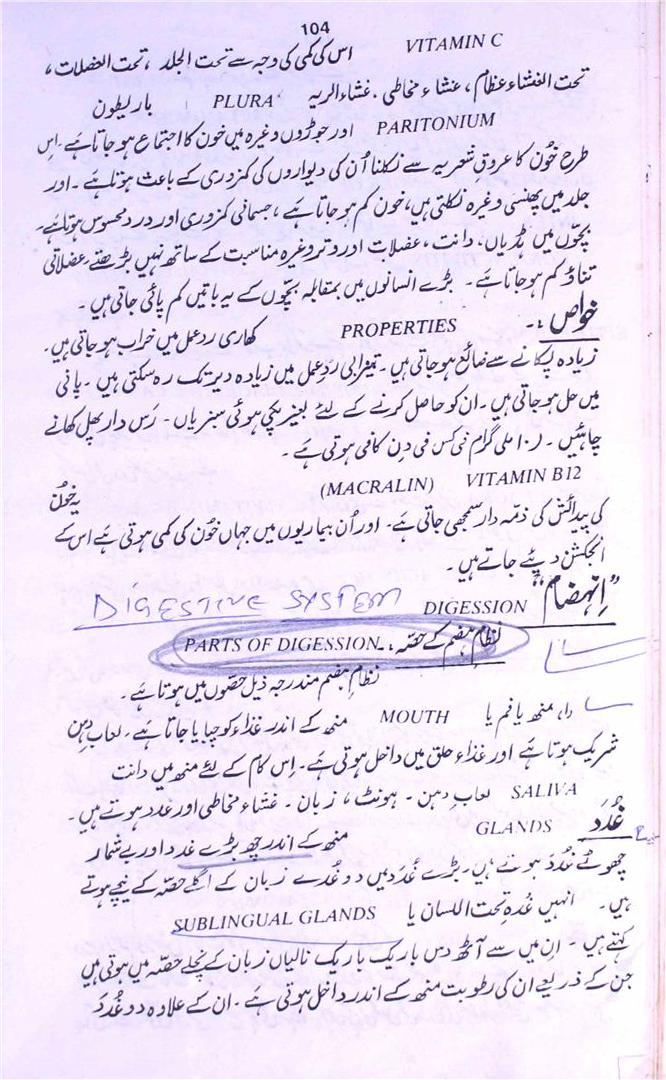 104
VITAMIN C اس کی کمی کی وجہ سے تحت الجلد ، تحت العضلات ،
تحت الغشاء عظام ، غشاء مخاطی ۔ غشاء الریہ PLURA باریطون
PARITONIUM اور جوڑوں وغیرہ میں خون کا اجتماع ہو جاتا ہے ۔ اس
طرح خُون کا عروق شعریہ سے نکلنا اُن کی دیواروں کی کمزوری کے باعث ہوتا ہے ۔ اور
جلد میں پھنسی وغیرہ نکلتی ہیں، خون کم ہو جاتا ہے ، جسمانی کمزوری اور درد محسوس ہوتا ہے۔
بچّوں میں ہڈیاں ، دانت ، عضلات اور وتر وغیرہ مناسبت کے ساتھ نہیں بڑھتے ۔ عضلاتی
تناؤ کم ہو جاتا ہے ۔ بڑے انسانوں میں بمقابلہ بچّوں کے یہ باتیں کم پائی جاتی ہیں ۔
خواص :۔ PROPERTIES کھاری ردعمل میں خراب ہو جاتی ہیں۔
زیادہ پکانے سے ضائع ہو جاتی ہیں ۔ تیزابی ردّعمل میں زیادہ دیر تک رہ سکتی ہیں ۔ پانی
میں حل ہو جاتی ہیں ۔ ان کو حاصل کرنے کے لئے بغیر پکی ہوئی سبزیاں ۔ رَس دار پھل کھانے
چاہئیں ۔ ۱۰ر ملی گرام فی کس فی دِن کافی ہوتی ہے ۔
VITAMIN B12 (MACRALIN) یہ خُون
کی پیدائش کی ذمّہ دار سمجھی جاتی ہے ۔ اور اُن بیماریوں میں جہاں خُون کی کمی ہوتی ہے اس کے
انجکشن دیئے جاتے ہیں ۔
"اِنہضام" DIGESSION DIGESTIVE SYSTEM
نظامِ ہضم کے حصّہ :۔ PARTS OF DIGESSION
نظامِ ہضم مندرجہ ذیل حصّوں میں ہوتا ہے ۔
(۱) منھ یا فم یا MOUTH منھ کے اندر غذاء کو چبایا جاتا ہے ۔ لعاب دہن
شریک ہوتا ہے اور غذاء حلق میں داخل ہوتی ہے ۔ اِس کام کے لئے منھ میں دانت
SALIVA لعابِ دہن ۔ ہونٹ ، زبان ۔ غشاء مخاطی اور غدد ہوتے ہیں ۔
غُدَد GLANDS منھ کے اندر چھ بڑے غدد اور بے شمار
چھوٹے غُدَد ہوتے ہیں ۔ بڑے غُدَد میں دو غُدے زبان کے اگلے حصّہ کے نیچے ہوتے
ہیں ۔ انہیں غدہ تحت اللسان یا SUBLINGUAL GLANDS
کہتے ہیں ۔ اِن میں سے آٹھ دس باریک باریک نالیاں زبان کے نچلے حصّہ میں ہوتی ہیں
جن کے ذریعے ان کی رطوبت منھ کے اندر داخل ہوتی ہے ۔ ان کے علاوہ دو غُدَد